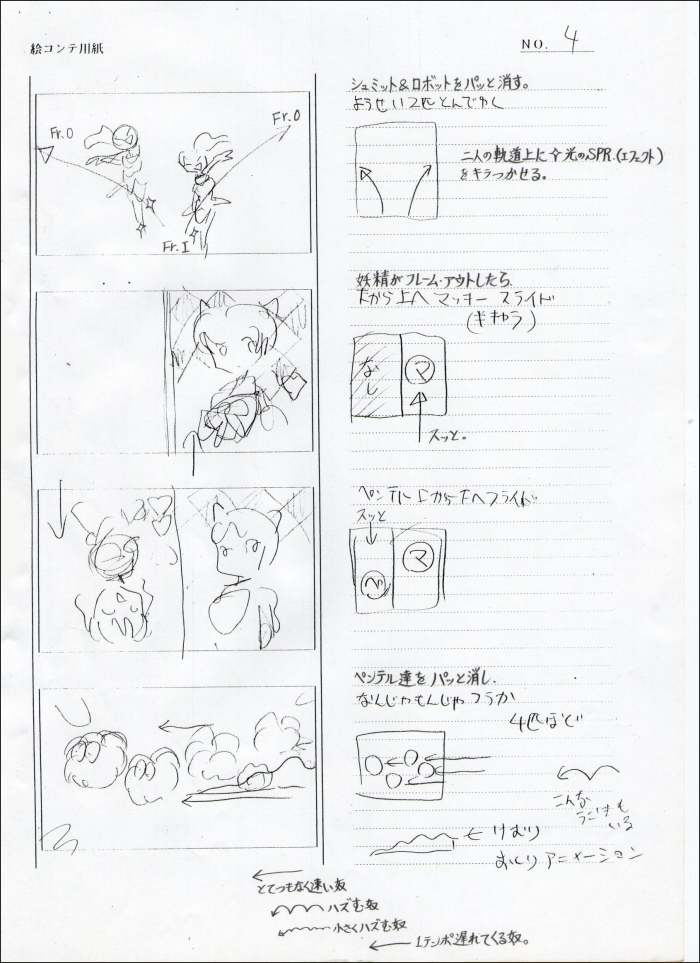 絵コンテ用紙
NO. 4
シュミット&ロボットをパッと消す。
ようせい2匹とんでゆく
Fr.O
Fr.O
Fr.I
二人の軌道上に☆光のSPR.(エフェクト)
をキラつかせる。
妖精がフレーム・アウトしたら、
下から上へマッキー スライド
(ギキャラ)
なし
マ
スッと。
ペンテル上から下へスライド
スッと
ペ
マ
ペンテル達をパッと消し、
なんじゃもんじゃ
4匹ほど
こんな
いる
けむり
アニメーション
とてつもなく速い奴
ハズむ奴
小さくハズむ奴
1テンポ遅れてくる奴。